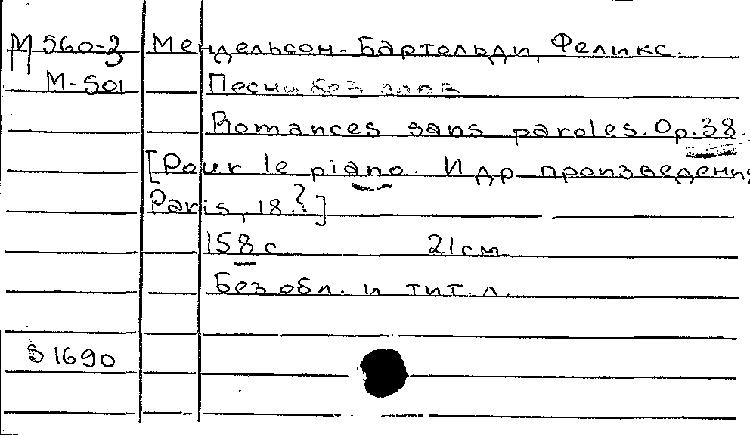 М 560-2 Мендельсон-Бартольди, Феликс.
М-501 Песни без слов
Romances sans paroles. Op. 38.
[Pour le piano. И др произведения
Paris, 18 ?]
158 с 21 см
Без обл. и тит. л.
1690